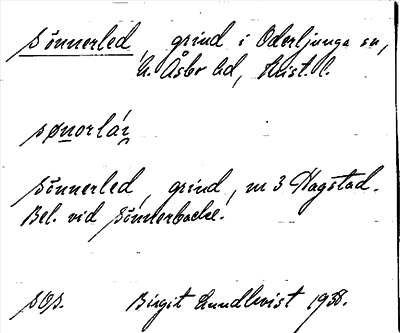 Sönnerled, grind i Oderljunga sn,
N. Åsbo hd, Krist. l.
sønorlá
Sönnerled, grind, nr 3 Hagstad.
Bel. vid Sönnerbacke.
sgs. Birgit Lundkvist 1938.